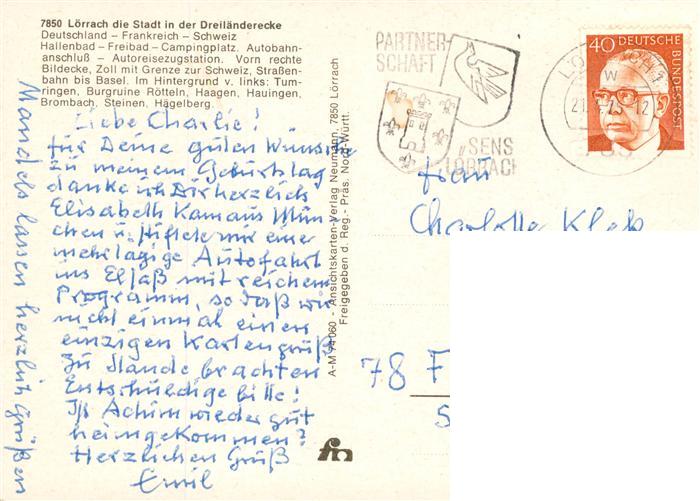 7850 Lörrach die Stadt in der Dreiländerecke
Deutschland – Frankreich – Schweiz
Hallenbad – Freibad – Campingplatz. Autobahn-
anschluß – Autoreisezugstation. Vorn rechte
Bildecke, Zoll mit Grenze zur Schweiz, Straßen-
bahn bis Basel. Im Hintergrund v. links: Tum-
ringen, Burgruine Rötteln, Haagen, Hauingen,
Brombach, Steinen, Hägelberg.
Liebe Charlie!
für Deine guten Wünsche
zu meinem Geburtstag
danke ich Dir herzlich
Elisabeth kam aus Mün
chen u. stiftete mir eine
mehrtägige Autofahrt
ins Elsaß mit reichem
Programm, so daß wir
nicht einmal einen
einzigen Kartengruß
zu Stande brachten
Entschuldige bitte!
Ist Achim wieder gut
heimgekommen?
Herzlichen Gruß
Emil
Mandels lassen herzlich grüßen
A-M 74 060 - Ansichtskarten-Verlag Neumann, 7850 Lörrach
Freigegeben d. Reg.- Präs. Nord-Württ.
PARTNER-
SCHAFT
SENS
LÖRRACH
40 DEUTSCHE
BUNDESPOST
Frau
Charlotte
78 F